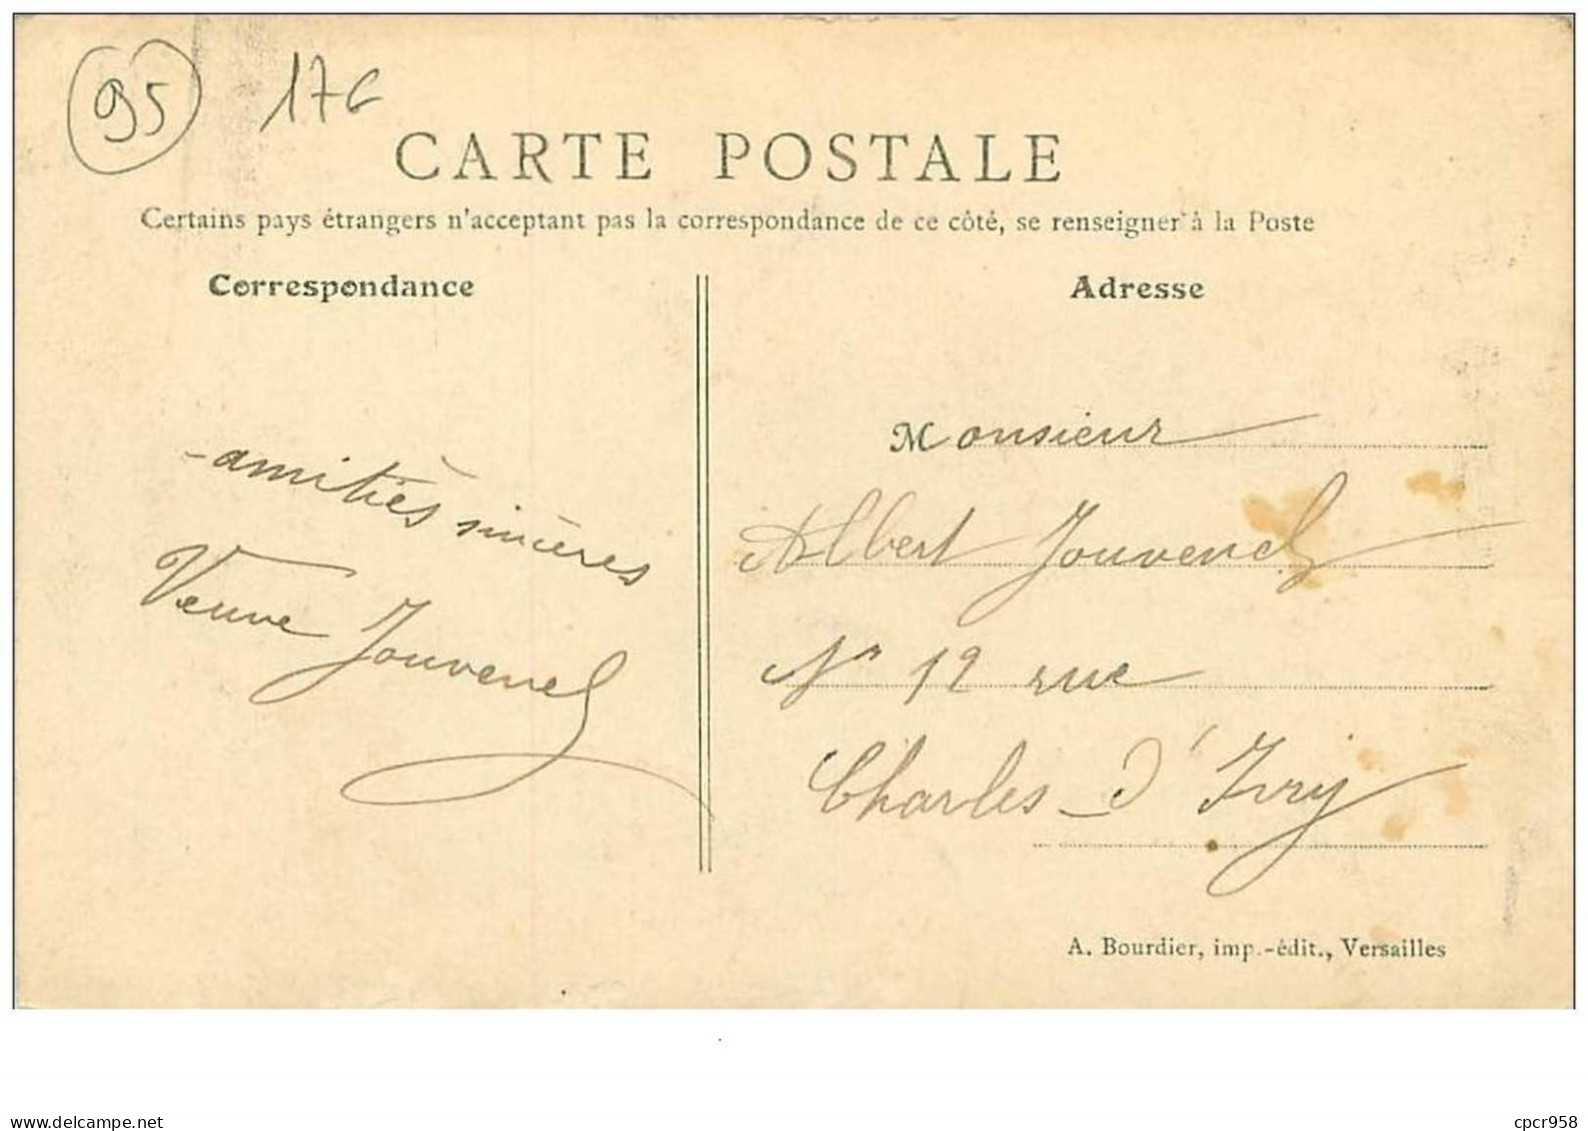 95 176
CARTE POSTALE
Certains pays étrangers n'acceptant pas la correspondance de ce côté, se renseigner à la Poste
Correspondance
Adresse
amitiés sincères
Veuve Jouvenel
Monsieur
Albert Jouvenel
No 12 rue
Charles d'Ivry
A. Bourdier, imp.-édit., Versailles
www.delcampe.net
cpcr958